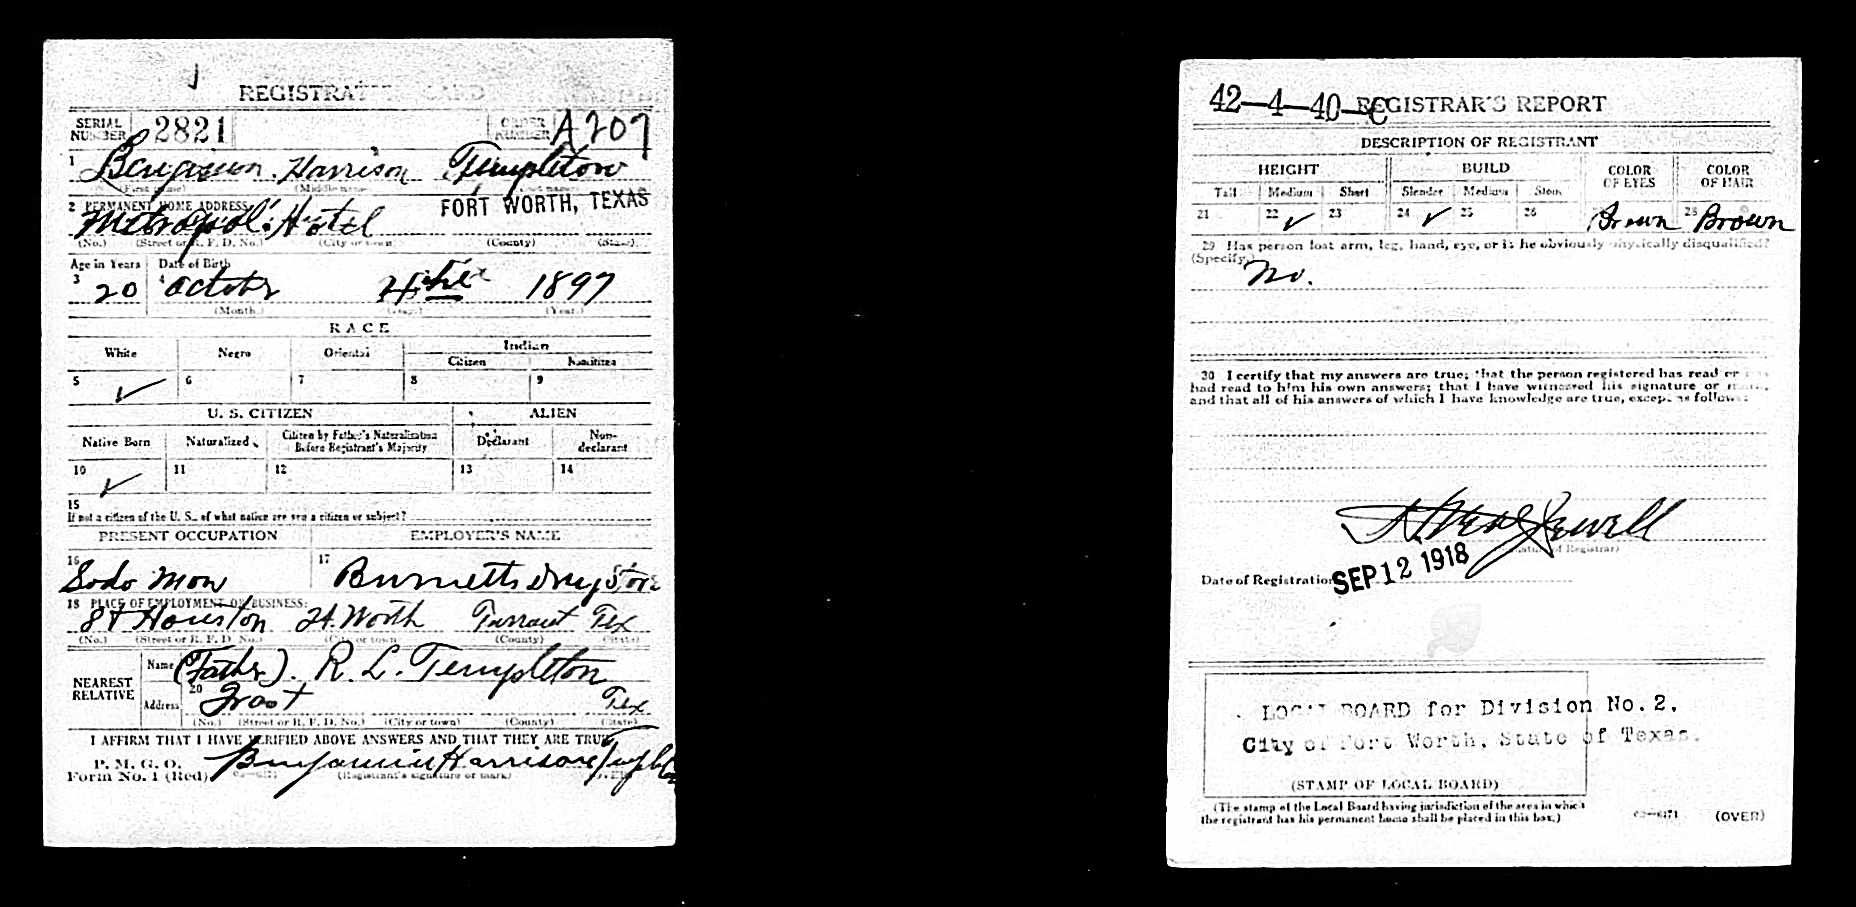 REGISTRATION CARD
SERIAL NUMBER 2821 ORDER NUMBER A207
1 Benjamin Harrison Templeton
(First name) (Middle name) (Last name)
2 PERMANENT HOME ADDRESS: FORT WORTH, TEXAS
Metropol: Hotel
(No.) (Street or R. F. D. No.) (City or town) (County) (State)
Age in Years Date of Birth
3 20 4 October 4the 1897
(Month.) (Day.) (Year.)
RACE
White Negro Oriental Indian
Citizen Noncitizen
5 ✓ 6 7 8 9
U. S. CITIZEN ALIEN
Native Born Naturalized Citizen by Father's Naturalization Before Registrant's Majority Declarant Non-declarant
10 ✓ 11 12 13 14
15
If not a citizen of the U. S., of what nation are you a citizen or subject?
PRESENT OCCUPATION EMPLOYER'S NAME
16 Soda Man 17 Burnetts Drug Store
18 PLACE OF EMPLOYMENT OR BUSINESS:
8t Houston Ft. Worth Tarrant Tex
(No.) (Street or R. F. D. No.) (City or town) (County) (State)
NEAREST RELATIVE Name (Father). R. L. Templeton
Address 20 Frost Tex
(No.) (Street or R. F. D. No.) (City or town) (County) (State)
I AFFIRM THAT I HAVE VERIFIED ABOVE ANSWERS AND THAT THEY ARE TRUE
P. M. G. O.
Form No. 1 (Red) Benjamin Harrison Templeton
(Registrant's signature or mark) (OVER)
42-4-40-C REGISTRAR'S REPORT
DESCRIPTION OF REGISTRANT
HEIGHT BUILD COLOR OF EYES COLOR OF HAIR
Tall Medium Short Slender Medium Stout
21 22 ✓ 23 24 ✓ 25 26 Brown 28 Brown
29 Has person lost arm, leg, hand, eye, or is he obviously physically disqualified?
(Specify.) No.
30 I certify that my answers are true; that the person registered has read or has
had read to him his own answers; that I have witnessed his signature or mark,
and that all of his answers of which I have knowledge are true, except as follows:
Jewell
(Signature of Registrar)
Date of Registration SEP 12 1918
LOCAL BOARD for Division No. 2.
City of Fort Worth, State of Texas.
(STAMP OF LOCAL BOARD)
(The stamp of the Local Board having jurisdiction of the area in which
the registrant has his permanent home shall be placed in this box.)
03—6171 (OVER)